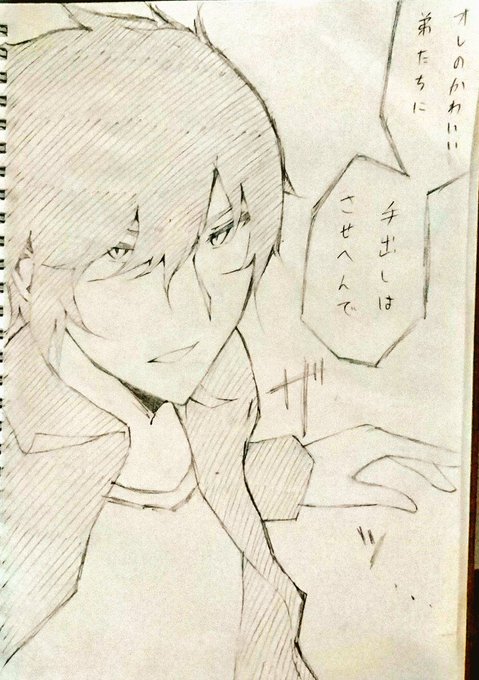 オレのかわいい
弟たちに
手出しは
させへんで
ザッ